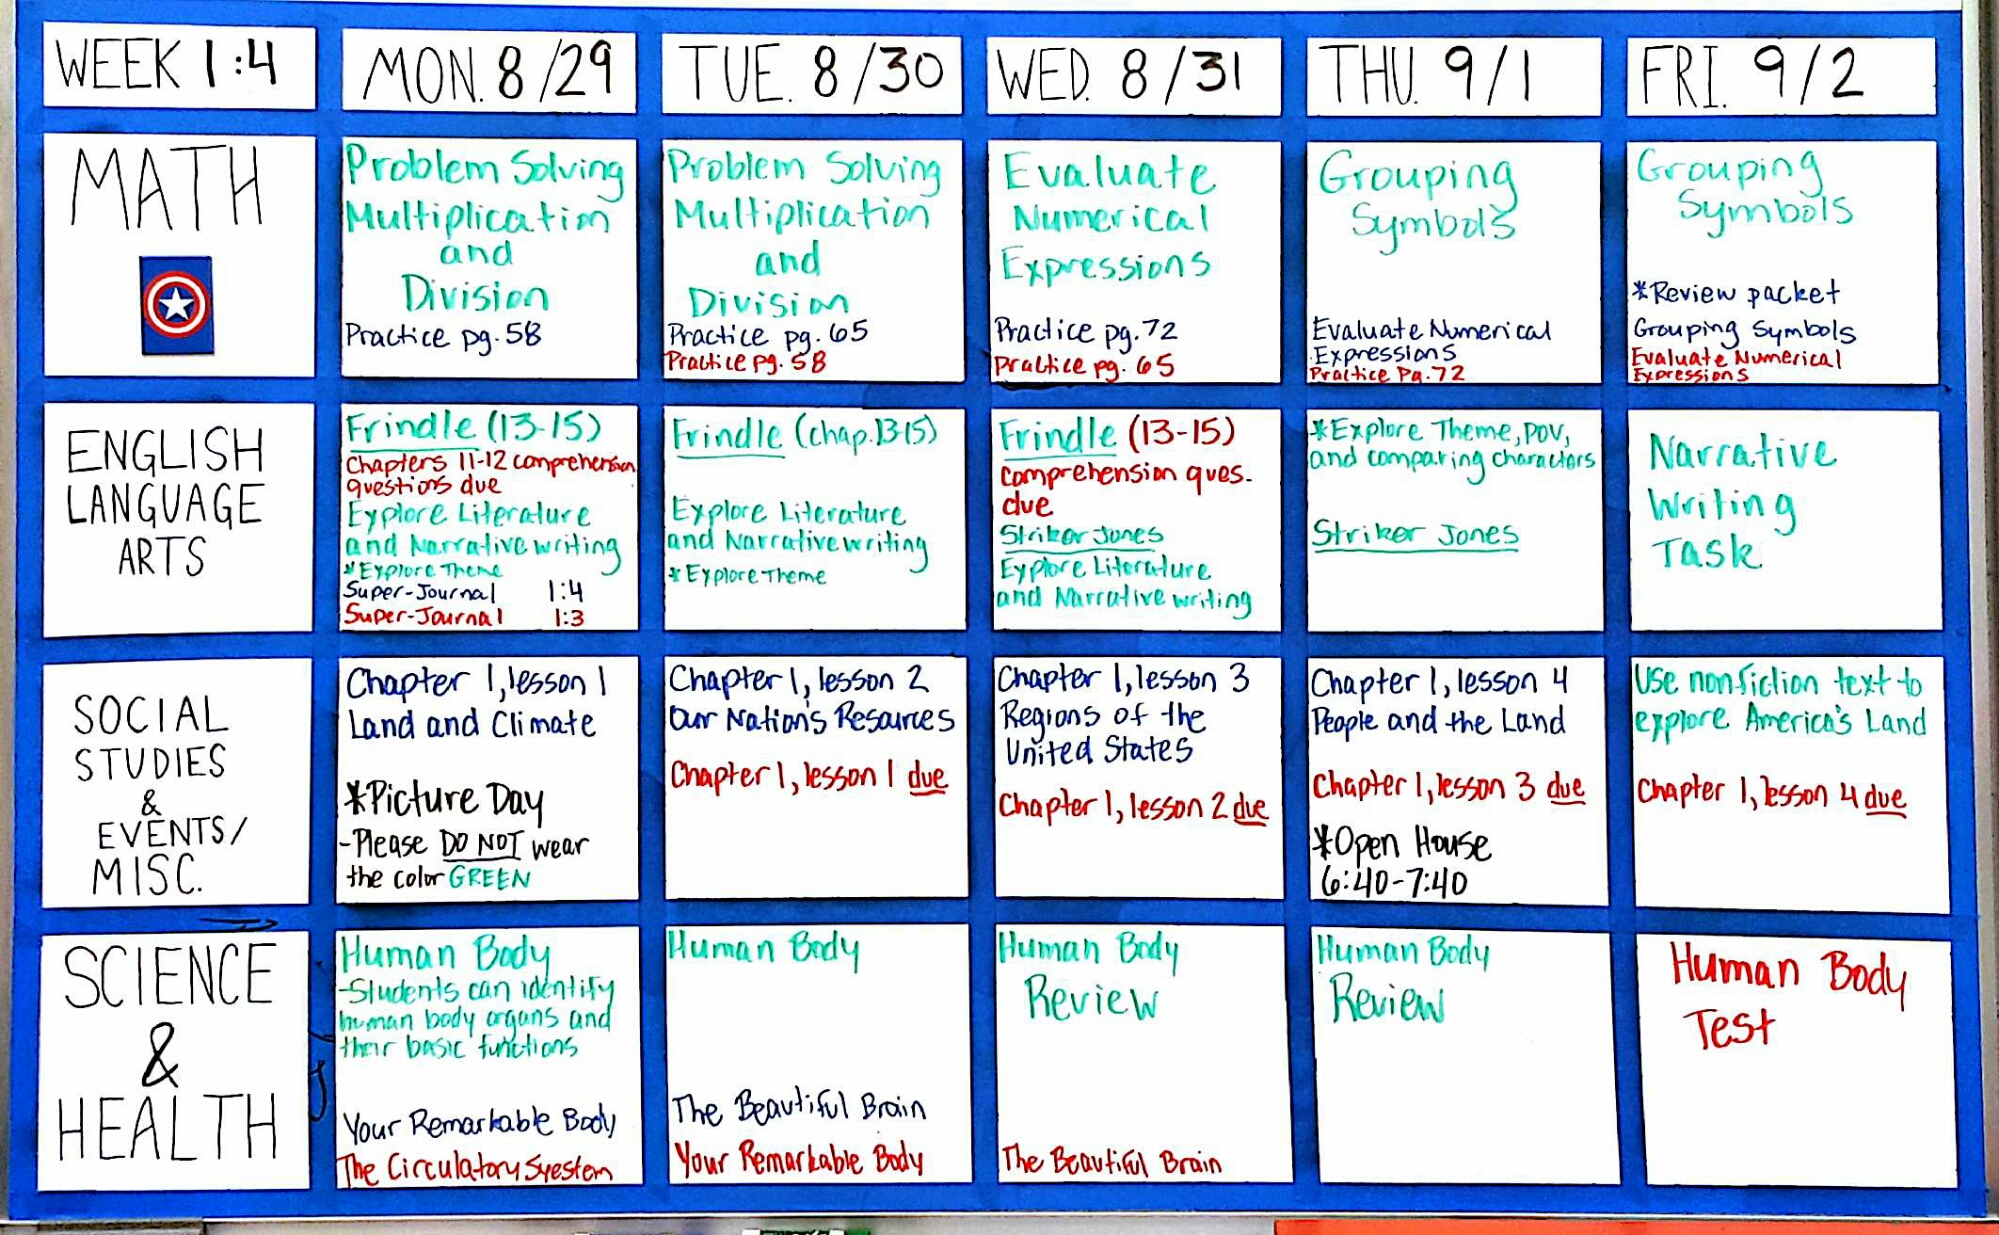 WEEK 1:4
MON. 8/29
TUE. 8/30
WED. 8/31
THU. 9/1
FRI. 9/2
MATH
Problem Solving
Multiplication
and
Division
Practice pg. 58
Problem Solving
Multiplication
and
Division
Practice pg. 65
Practice pg. 58
Evaluate
Numerical
Expressions
Practice pg. 72
Practice pg. 65
Grouping
Symbols
Evaluate Numerical
Expressions
Practice Pg. 72
Grouping
Symbols
*Review packet
Grouping Symbols
Evaluate Numerical
Expressions
ENGLISH
LANGUAGE
ARTS
Frindle (13-15)
Chapters 11-12 comprehension
questions due
Explore Literature
and Narrative writing
*Explore Theme
Super-Journal 1:4
Super-Journal 1:3
Frindle (chap. 13-15)
Explore Literature
and Narrative writing
*Explore Theme
Frindle (13-15)
comprehension ques.
due
Striker Jones
Explore Literature
and Narrative writing
*Explore Theme, POV,
and comparing characters
Striker Jones
Narrative
Writing
Task
SOCIAL
STUDIES
&
EVENTS/
MISC.
Chapter 1, lesson 1
Land and Climate
*Picture Day
-Please DO NOT wear
the color GREEN
Chapter 1, lesson 2
Our Nation's Resources
Chapter 1, lesson 1 due
Chapter 1, lesson 3
Regions of the
United States
Chapter 1, lesson 2 due
Chapter 1, lesson 4
People and the Land
Chapter 1, lesson 3 due
*Open House
6:40-7:40
Use nonfiction text to
explore America's Land
Chapter 1, lesson 4 due
SCIENCE
&
HEALTH
Human Body
-Students can identify
human body organs and
their basic functions
Your Remarkable Body
The Circulatory Syestem
Human Body
The Beautiful Brain
Your Remarkable Body
Human Body
Review
The Beautiful Brain
Human Body
Review
Human Body
Test